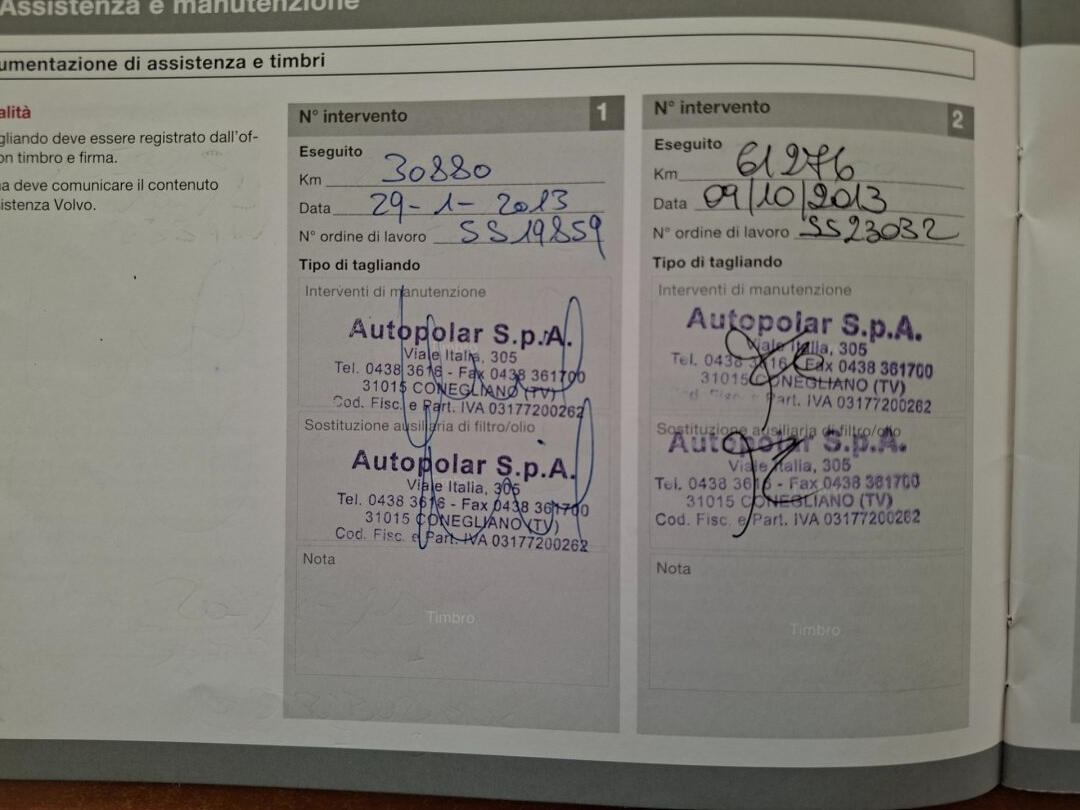 Assistenza e manutenzione
umentazione di assistenza e timbri
alità
gliando deve essere registrato dall'of-
on timbro e firma.
a deve comunicare il contenuto
istenza Volvo.
N° intervento 1
Eseguito
Km 30880
Data 29-1-2013
N° ordine di lavoro SS19859
Tipo di tagliando
Interventi di manutenzione
Autopolar S.p.A.
Viale Italia, 305
Tel. 0438 3616 - Fax 0438 361700
31015 CONEGLIANO (TV)
Cod. Fisc. e Part. IVA 03177200262
Sostituzione ausiliaria di filtro/olio
Autopolar S.p.A.
Viale Italia, 305
Tel. 0438 3616 - Fax 0438 361700
31015 CONEGLIANO (TV)
Cod. Fisc. e Part. IVA 03177200262
Nota
Timbro
N° intervento 2
Eseguito
Km 61276
Data 09/10/2013
N° ordine di lavoro SS23032
Tipo di tagliando
Interventi di manutenzione
Autopolar S.p.A.
Viale Italia, 305
Tel. 0438 3616 - Fax 0438 361700
31015 CONEGLIANO (TV)
Cod. Fisc. e Part. IVA 03177200262
Sostituzione ausiliaria di filtro/olio
Autopolar S.p.A.
Viale Italia, 305
Tel. 0438 3616 - Fax 0438 361700
31015 CONEGLIANO (TV)
Cod. Fisc. e Part. IVA 03177200262
Nota
Timbro